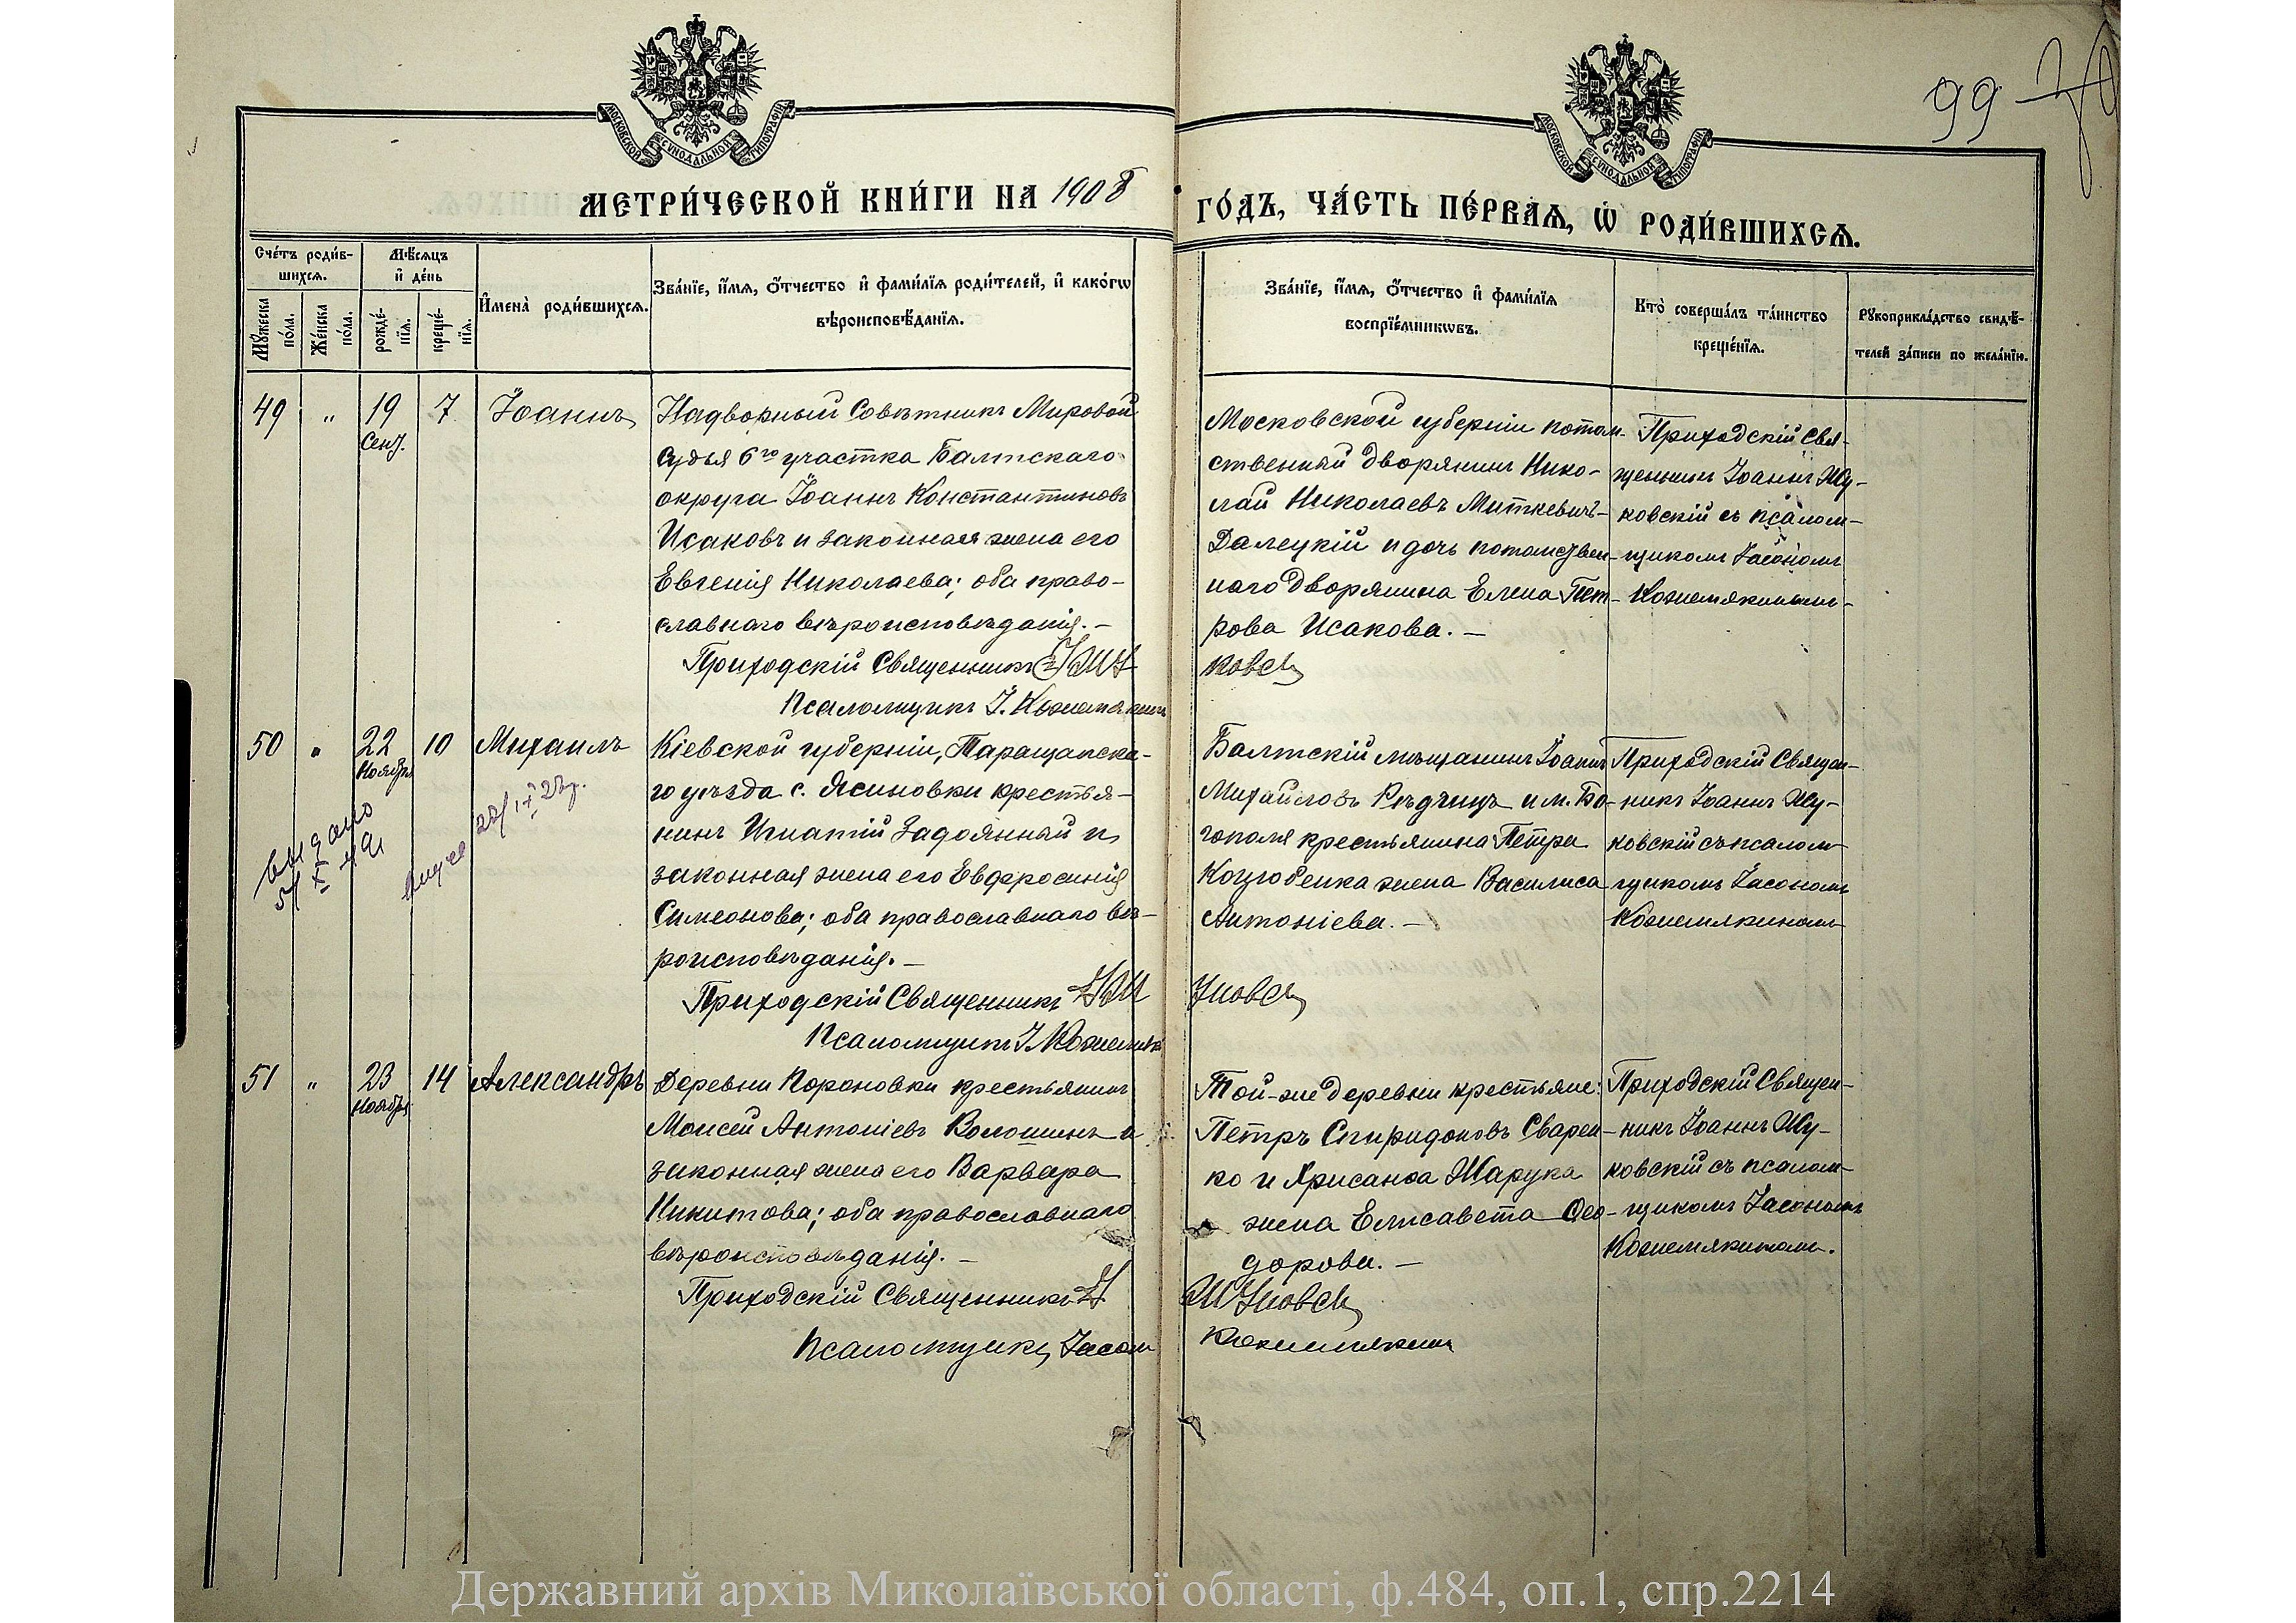 99
МОСКОВСКОЙ СѴНОДАЛЬНОЙ ТИПОГРАФІИ
МОСКОВСКОЙ СѴНОДАЛЬНОЙ ТИПОГРАФІИ
МЕТРИ́ЧЕСКОЙ КНИ́ГИ НА 1908
ГО́ДЪ, ЧА́СТЬ ПЕ́РВАѦ, Ѡ РОДИ́ВШИХСѦ.
Сче́тъ роди́в-
шихсѧ.
Мꙋ́жеска по́ла.
Же́нска по́ла.
Мѣ́сѧцъ
и де́нь
рожде́-нїѧ.
креще́-нїѧ.
Имена̀ роди́вшихсѧ.
Зва́нїе, и́мѧ, ѻ́тчество и фами́лїѧ роди́телей, и како́гѡ
вѣроисповѣ́данїѧ.
Зва́нїе, и́мѧ, ѻ́тчество и фами́лїѧ
воспрїе́мникѡвъ.
Кто̀ соверша́лъ та́инство
креще́нїѧ.
Рꙋкоприкла́дство свидѣ́-
телей за́писи по жела́нїю.
49 " 19 7 Іоаннъ
Сент.
Надворный Совѣтникъ Мировой
Судья 6го участка Балтскаго
округа Іоаннъ Константиновъ
Исаковъ и законная жена его
Евгенія Николаева; оба право-
славнаго вѣроисповѣданія. –
Приходскій Священникъ
Псаломщикъ І. Кожемякинъ
Московской губерніи потом-
ственный дворянинъ Нико-
лай Николаевъ Миткевичъ-
Далецкій и дочь потомствен-
наго дворянина Елена Пет-
рова Исакова. –
Приходскій Свя-
щенникъ Іоаннъ Жу-
ковскій съ псалом-
щикомъ Іасономъ
Кожемякинымъ
50 " 22 10 Михаилъ
Ноября
выдано
Кіевской губерніи, Таращанска-
го уѣзда с. Ясиновки крестья-
нинъ Игнатій Задоянный и
законная жена его Евфросинія
Симеонова; оба православнаго вѣ-
роисповѣданія. –
Приходскій Священникъ
Псаломщикъ І. Кожемяки
Балтскій мѣщанинъ Іоаннъ
Михайловъ и м. Бо-
гополя крестьянина Петра
Коцюбенка жена Василиса
Антоніева. –
Приходскій Священ-
никъ Іоаннъ Жу-
ковскій съ псалом-
щикомъ Іасономъ
Кожемякинымъ
51 " 23 14 Александръ
Ноября
Деревни Короновки крестьянинъ
Моисей Антоніевъ Волошинъ и
законная жена его Варвара
Никитова; оба православнаго
вѣроисповѣданія. –
Приходскій Священникъ
Псаломщикъ Іасонъ Кожемякинъ
Той-же деревни крестьяне:
Петръ Спиридоновъ Сварен-
ко и Хрисанфа Шарука
жена Елисавета Ѳео-
дорова. –
Приходскій Священ-
никъ Іоаннъ Жу-
ковскій съ псалом-
щикомъ Іасономъ
Кожемякинымъ.
Державний архів Миколаївської області, ф.484, оп.1, спр.2214